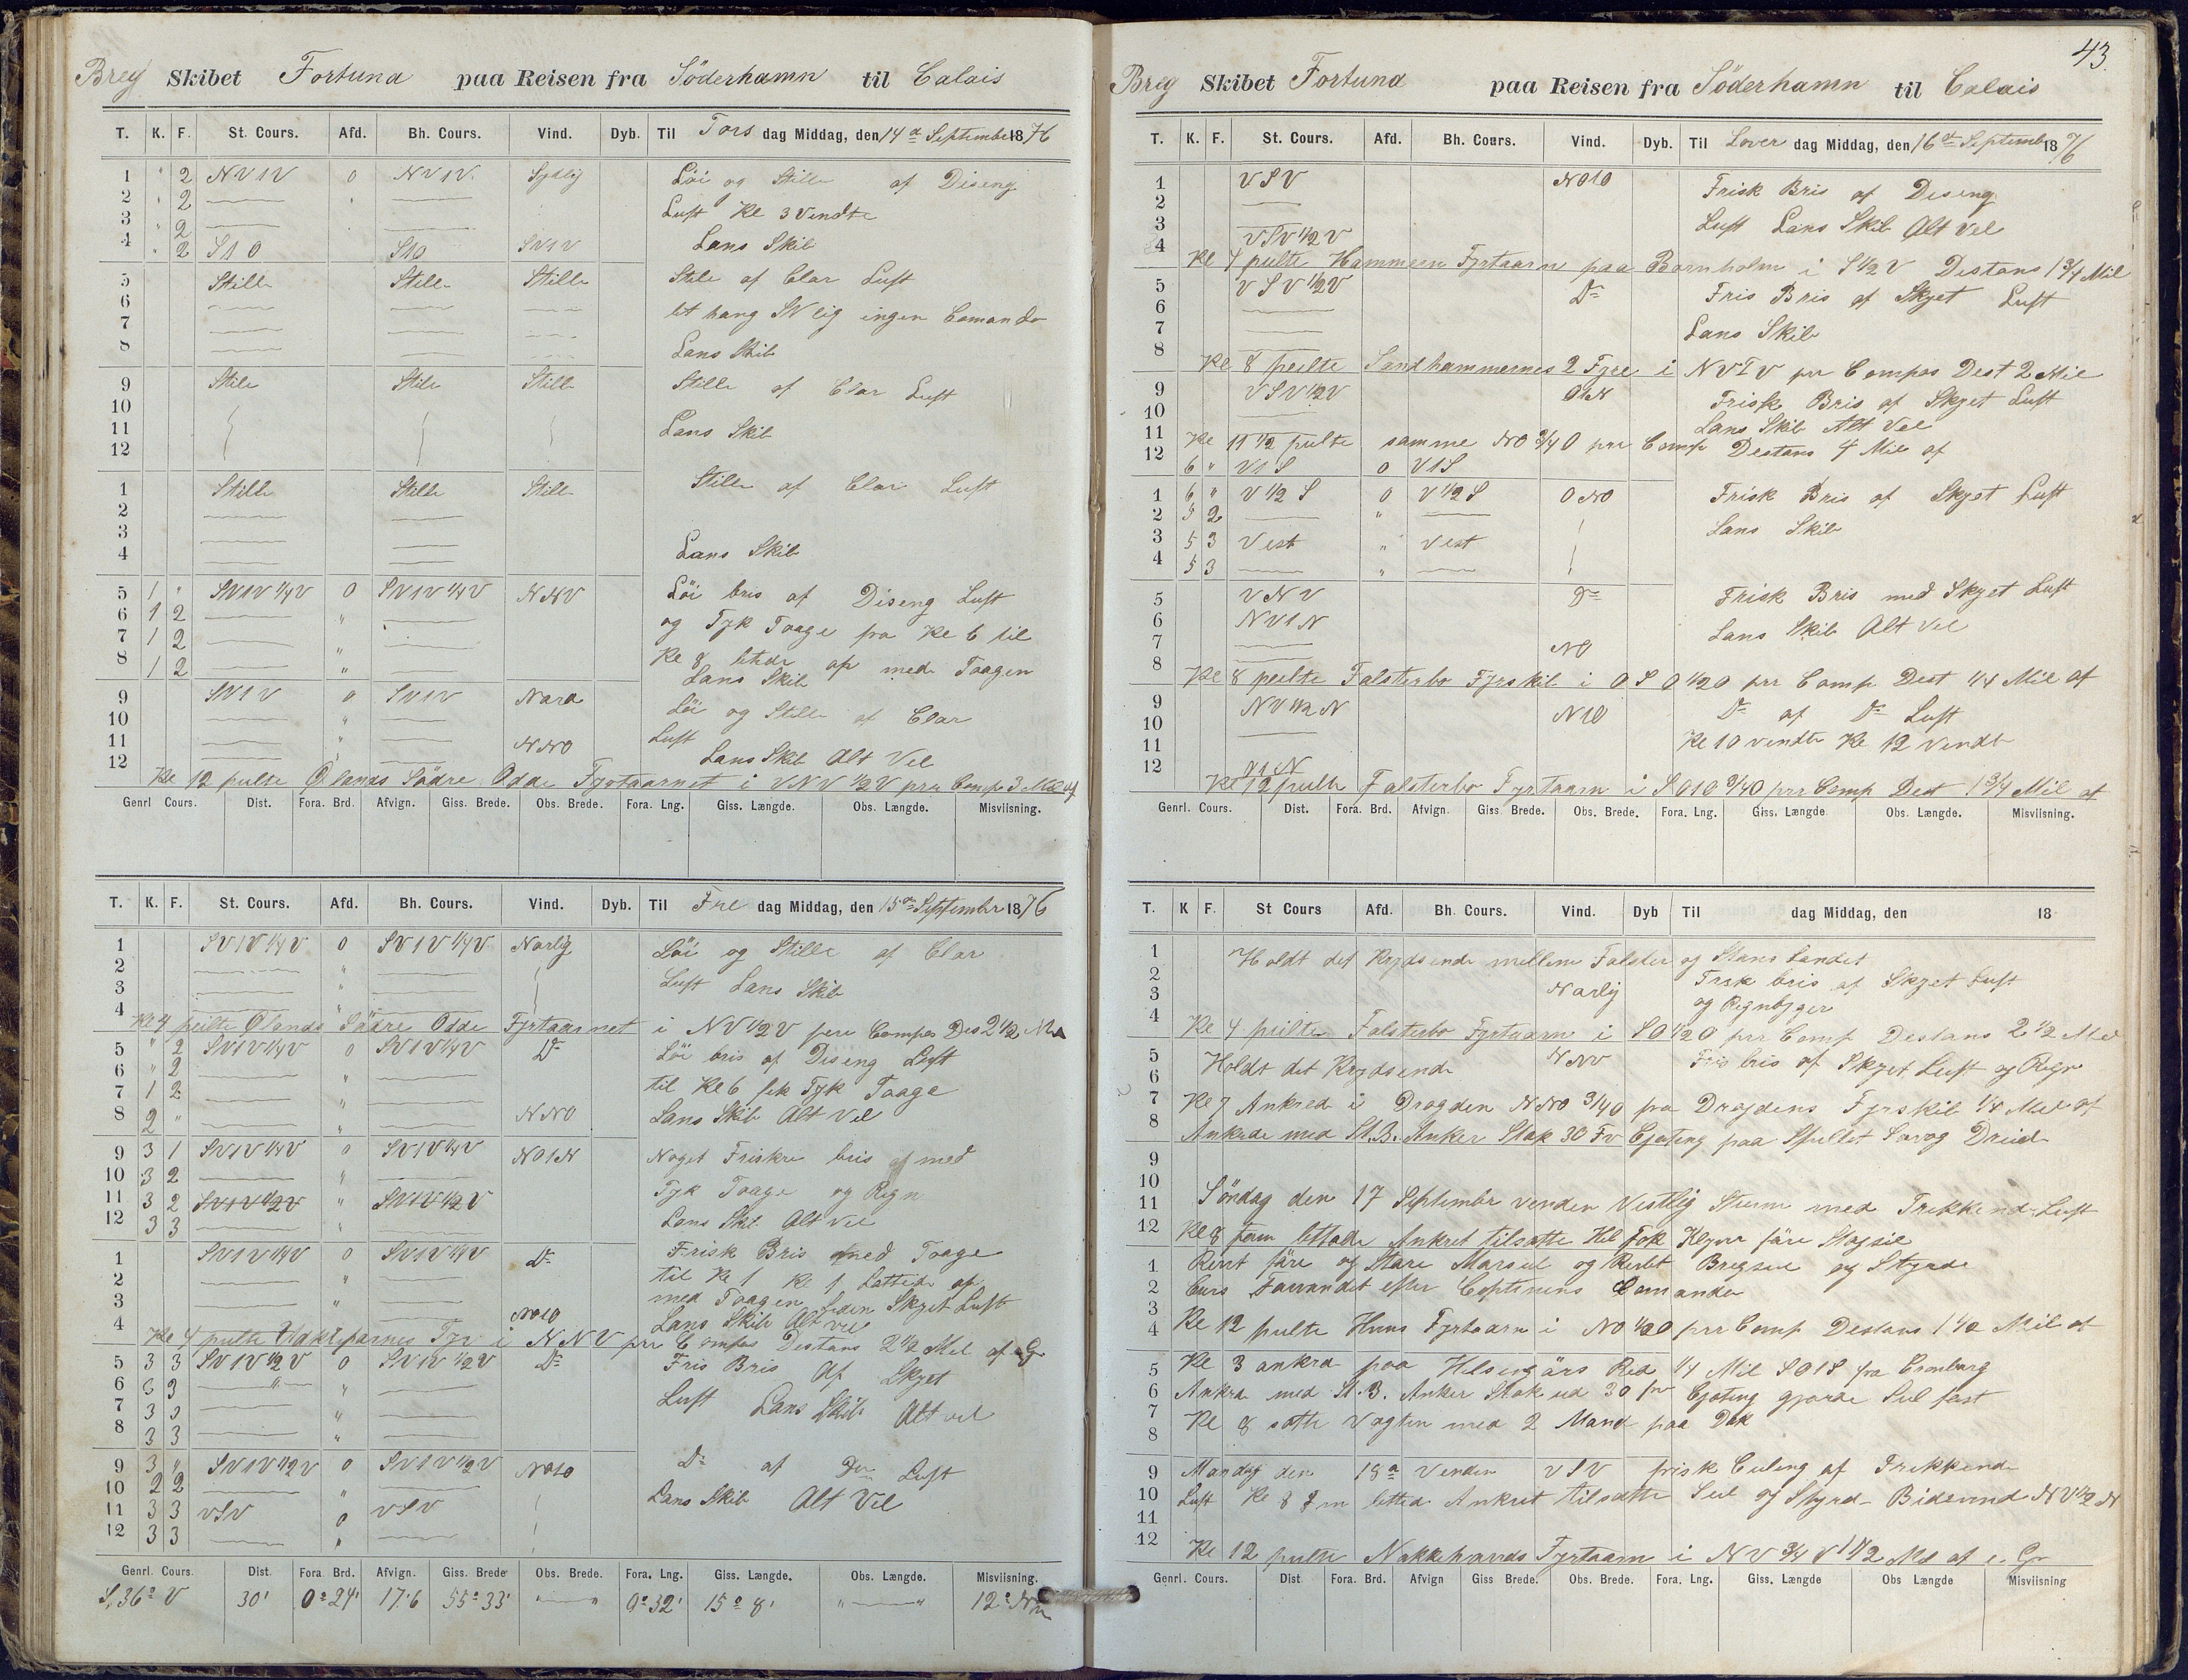 Breg Skibet Fortuna paa Reisen fra Söderhamn til Calais
T. K. F. St. Cours. Afd. Bh. Cours. Vind. Dyb. Til Tors dag Middag, den 14de September 1876
1 " 2 NV1V 0 NV1V Sydlig Löi og Stille af Diseng
2 " 2 Luft Kl 3 Vendte
3 " 2
4 " 2 S10 S10 SV1V Lans Skib
5 Stille Stille Stille Stile af Clar Luft
6 let hang SV lig ingen Comando
7
8 Lans Skib
9 Stile Stile Stille Stille af Clar Luft
10
11 Lans Skib
12
1 Stille Stille Stille Stille af Clar Luft
2
3
4 Lans Skib
5 1 " SV1V 1/4 V 0 SV1V 1/4 V NNV Löi bris af Diseng Luft
6 1 2 " og Tyk Taage fra Kl 6 til
7 1 2 " Kl 8 letede op med Taagen
8 1 2 " Lans Skib
9 SV1V 0 SV1V Löi og Stille af Clar
10 " Luft
11 " NNO
12 Lans Skib Alt Vel
Kl 12 peilte Ölands Södre Odde Fyrtaarnet i VNV 1/2 V prr Comp 3 Mil af
Genrl Cours. Dist. Fora. Brd. Afvign. Giss. Brede. Obs. Brede. Fora. Lng. Giss. Længde. Obs. Længde. Misviisning.
T. K. F. St. Cours. Afd. Bh. Cours. Vind. Dyb. Til Fre dag Middag, den 15de September 1876
1 SV1V 1/4 V 0 SV1V 1/4 V Norlig Löi og Stille af Clar
2 "
3 " Luft Lans Skib
4 "
Kl 4 peilte Ölands Södre Odde Fyrtaarnet i NV 1/2 V perr Compas Des 2 1/2 Mil
5 " 2 SV1V 1/4 V 0 SV1V 1/4 V Do Löi bris af Diseng Luft
6 " 2 " til Kl 6 fik Tyk Taage
7 1 2 "
8 2 " " NNO Lans Skib Alt Vel
9 3 1 SV1V 1/4 V 0 SV1V 1/4 V NO1N Noget Friskre bris af med
10 3 2 " Tyk Taage og Regn
11 3 2 SV1V 1/2 V " SV1V 1/2 V
12 3 3 " Lans Skib Alt Vel
1 SV1V 1/4 V 0 SV1V 1/4 V Do Frisk Bris med Taage
2 " til Kl 1 Kl 1 Lettede op
3 " med Taagen Siden Skyet Luft
4 NO1O Lans Skib Alt vel
Kl 4 peilte Fyr i NNV prr Compas Destans 2 1/2 Mil af
5 3 3 SV1V 1/2 V 0 SV1V 1/2 V Do Fris Bris Af Skyet
6 3 3 "
7 3 3 " Luft Lans Skib Alt vel
8 3 3 "
9 3 " SV1V 1/2 V 0 SV1V 1/2 V NO1O Do af Do Luft
10 2 2 "
11 3 3 VSV 0 VSV Lans Skib Alt Vel
12 3 3 "
Genrl Cours. Dist. Fora. Brd. Afvign. Giss. Brede Obs. Brede. Fora. Lng. Giss. Længde. Obs. Længde. Misviisning.
S. 36° V 30' 0° 24' 17'.6 55° 33' " " 0° 32' 15° 8' " " 12°
43.
Breg Skibet Fortuna paa Reisen fra Söderhamn til Calais
T. K. F. St. Cours. Afd. Bh. Cours. Vind. Dyb. Til Löver dag Middag, den 16de Septembr 1876
1 VSV NO1O Frisk Bris af Diseng
2
3 Luft Lans Skib Alt Vel
4 VSV 1/2 V
Kl 4 peilte Hammern Fyrtaarn paa Bornholm i S 1/2 V Destans 1 3/4 Mil
5 VSV 1/2 V Do Fris Bris af Skyet Luft
6
7 Lans Skib
8
Kl 8 peilte Sandhammernes 2 Fyre i NV1V prr Compas Dest 2 Mil
9 VSV 1/2 V O1N Frisk Bris af Skyet Luft
10
11 Lans Skib Alt Vel
Kl 11 1/2 peilte samme NO 3/4 O prr Comp Destans 4 Mil af
12 6 " V1S 0 V1S
1 6 " V 1/2 S 0 V 1/2 S ONO Frisk Bris af Skyet Luft
2 5 2 "
3 5 3 Vest " Vest Lans Skib
4 5 3 "
5 VNV Do Frisk Bris med Skyet Luft
6 NV1N Lans Skib Alt Vel
7 NO
8
Kl 8 peilte Falsterbo Fyrskib i OSO 1/2 O prr Comp Dest 1/4 Mil af
9 NV 1/2 N N1O Do af Do Luft
10
11 Kl 10 vendte Kl 12 vendt
12 V1N
Kl 12 peilte Falsterbo Fyrtaarn i SO1O 3/4 O prr Comp Dest 1 3/4 Mil af
Genrl. Cours. Dist. Fora. Brd. Afvign. Giss. Brede. Obs. Brede. Fora. Lng. Giss. Længde. Obs. Længde. Misviisning.
T. K F. St Cours Afd. Bh. Cours. Vind. Dyb Til dag Middag, den 18
1 Holdt det Krydsende mellem Falster og Stans Landet
2 Frsk bris af Skyet Luft
3 Norlig og Regnbyger
4 Kl 4 peilte Falsterbo Fyrtaarn i SO 1/2 O prr Comp Destans 2 1/2 Mil
5 Holdt det Krydsende NNV Fris bris af Skyet Luft og Regn
6
7 Kl 7 Ankred i Drogden NNO 3/4 O fra Drogdens Fyrskib 1/4 Mil af
8 Ankrde med St.B. Anker Stak 30 Fv Cjæting paa Spillet
9
10
11 Söndag den 17 Septembr venden Vestlig Sturm med Trekkende Luft
12 Kl 8 form lettade Ankret tilsatte Hel Fok Klyver färe Stagseil
1 Revet färe og Stare Marseil og Revlet Bregseil og Styrde
2 Curs Farvandet efter Captinens Comando
3
4 Kl 12 peilte Hvens Fyrtaarn i NO 1/2 O prr Comp Destans 1 1/2 Mil af
5 Kl 3 ankra paa Helsingörs Red 1/4 Mil SO1S fra Cronburg
6 Ankra med St.B. Anker Stak ud 30 fv Cjæting gjorde Seil fast
7
8 Kl 8 satte Vagten med 2 Mand paa Dæk
9 Mandag den 18de Venden VSV frisk Culing af Trekkende
10 Luft Kl 8 Fm letted Ankret tilsatte Seil og Styrd Bidevind NV 1/2 N
11
12 Kl 12 peilte Nakkehoveds Fyrtaarn i NV 3/4 V 1 1/2 Mil af
Genrl. Cours. Dist Fora. Brd. Afvign Giss Brede. Obs. Brede. Fora. Lng. Giss. Længde Obs Længde Misviisning